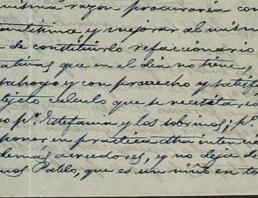 misma razon procuraria con
y mejorar al mismo
de constituirlo refaccionario
que en el dia no tiene,
trabajo y con provecho y satisf
calculo que se necesitaria
pr. Estefania y los sobrinos; pr.
poner en practica dha intenci
demas acreedores, y no deja de
nos Pablo, que es un niño en to